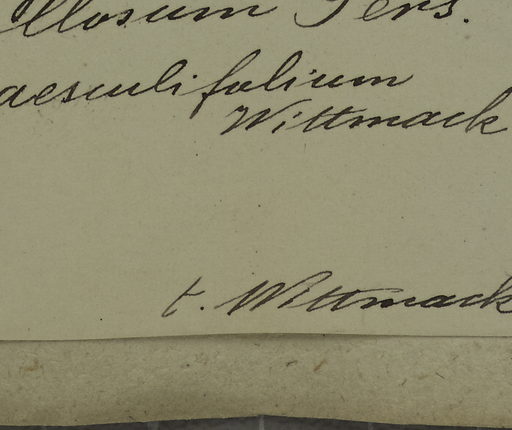 llosum Pers.
aesculifolium
Wittmack
t. Wittmack